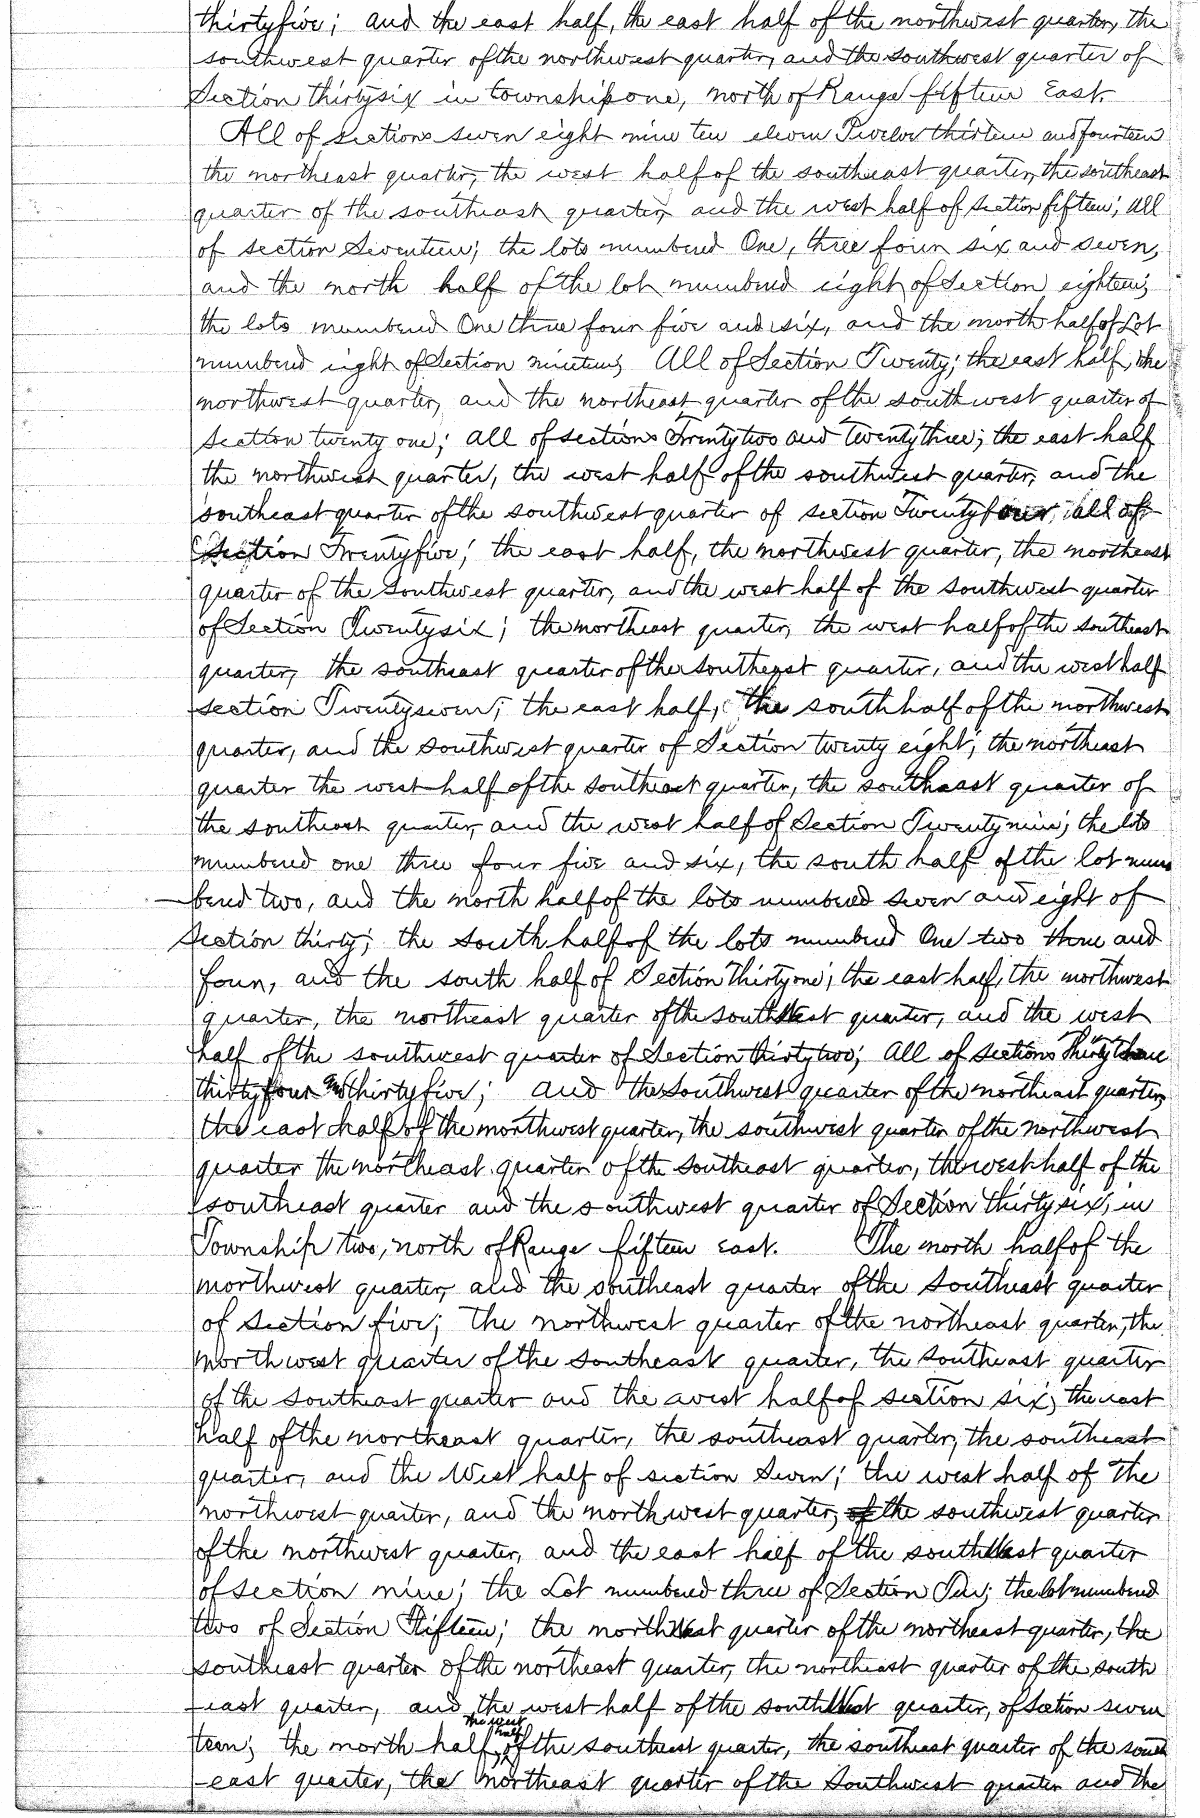 thirtyfive; and the east half, the east half of the northwest quarter, the
southwest quarter of the northwest quarter, and the southwest quarter of
Section thirtysix in township one, north of Range fifteen East.
All of sections seven eight nine ten eleven Twelve thirteen and fourteen
the northeast quarter, the west half of the southeast quarter, the southeast
quarter of the southeast quarter, and the west half of section fifteen; all
of section Seventeen; the lots numbered One, three four six and seven,
and the north half of the lot numbered eight of Section eighteen;
the lots numbered One three four five and six, and the north half of Lot
numbered eight of Section nineteen; All of Section Twenty; the east half, the
northwest quarter, and the northeast quarter of the southwest quarter of
Section twenty one; all of sections Twenty two and Twenty three; the east half
the northwest quarter, the west half of the southwest quarter, and the
southeast quarter of the southwest quarter of section Twentyfour, all of
Section Twentyfive; the east half, the northwest quarter, the northeast
quarter of the Southwest quarter, and the west half of the southwest quarter
of Section Twentysix; the northeast quarter, the west half of the southeast
quarter, the southeast quarter of the southeast quarter, and the west half
section Twentyseven; the east half, the south half of the northwest
quarter, and the southwest quarter of Section twenty eight; the northeast
quarter the west half of the southeast quarter, the southeast quarter of
the southeast quarter, and the west half of Section Twentynine; the lots
numbered one three four five and six, the south half of the lot num
bered two, and the north half of the lots numbered seven and eight of
Section thirty; the south half of the lots numbered One two three and
four, and the south half of Section Thirtyone; the east half, the northwest
quarter, the northeast quarter of the southwest quarter, and the west
half of the southwest quarter of Section thirtytwo; All of sections Thirty three
thirty four and Thirtyfive; and the southwest quarter of the northeast quarter,
the east half of the northwest quarter, the southwest quarter of the northwest
quarter the northeast quarter of the southeast quarter, the west half of the
southeast quarter and the southwest quarter of Section thirtysix, in
Township two, north of Range fifteen east. The north half of the
northwest quarter, and the southeast quarter of the Southeast quarter
of section five; The northwest quarter of the northeast quarter, the
northwest quarter of the southeast quarter, the southeast quarter
of the southeast quarter and the west half of section six; the east
half of the northeast quarter, the southeast quarter, the southeast
quarter, and the West half of section Seven; the west half of the
northwest quarter, and the northwest quarter, of the southwest quarter
of the northwest quarter, and the east half of the southwest quarter
of section nine; the Lot numbered three of Section Ten; the lot numbered
two of Section Fifteen; the northwest quarter of the northeast quarter, the
southeast quarter of the northeast quarter, the northeast quarter of the south
east quarter, and the west half of the southwest quarter, of Section seven
teen; the north half, the west half of the southeast quarter, the southeast quarter of the south
-east quarter, the northeast quarter of the Southwest quarter and the